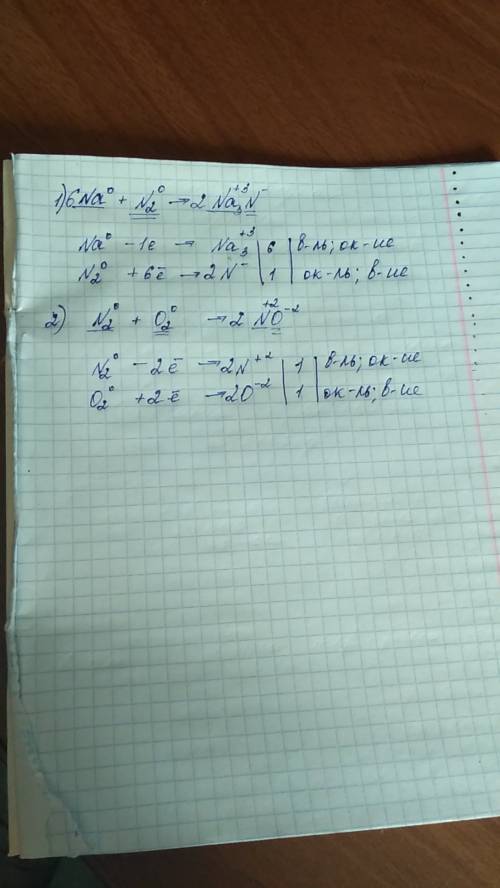 1) 6Na⁰ + N₂⁰ → 2 Na₃⁺³N⁻
Na⁰ − 1e → Na₃⁺³ | 6 | в-ль; ок-ие
N₂⁰ + 6ē → 2N⁻ | 1 | ок-ль; в-ие
2) N₂⁰ + O₂⁰ → 2 N⁺²O⁻²
N₂⁰ − 2ē → 2N⁺² | 1 | в-ль; ок-ие
O₂⁰ + 2ē → 2O⁻² | 1 | ок-ль; в-ие